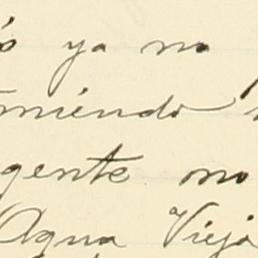 ya no
miendo
gente no
Agua Vieja